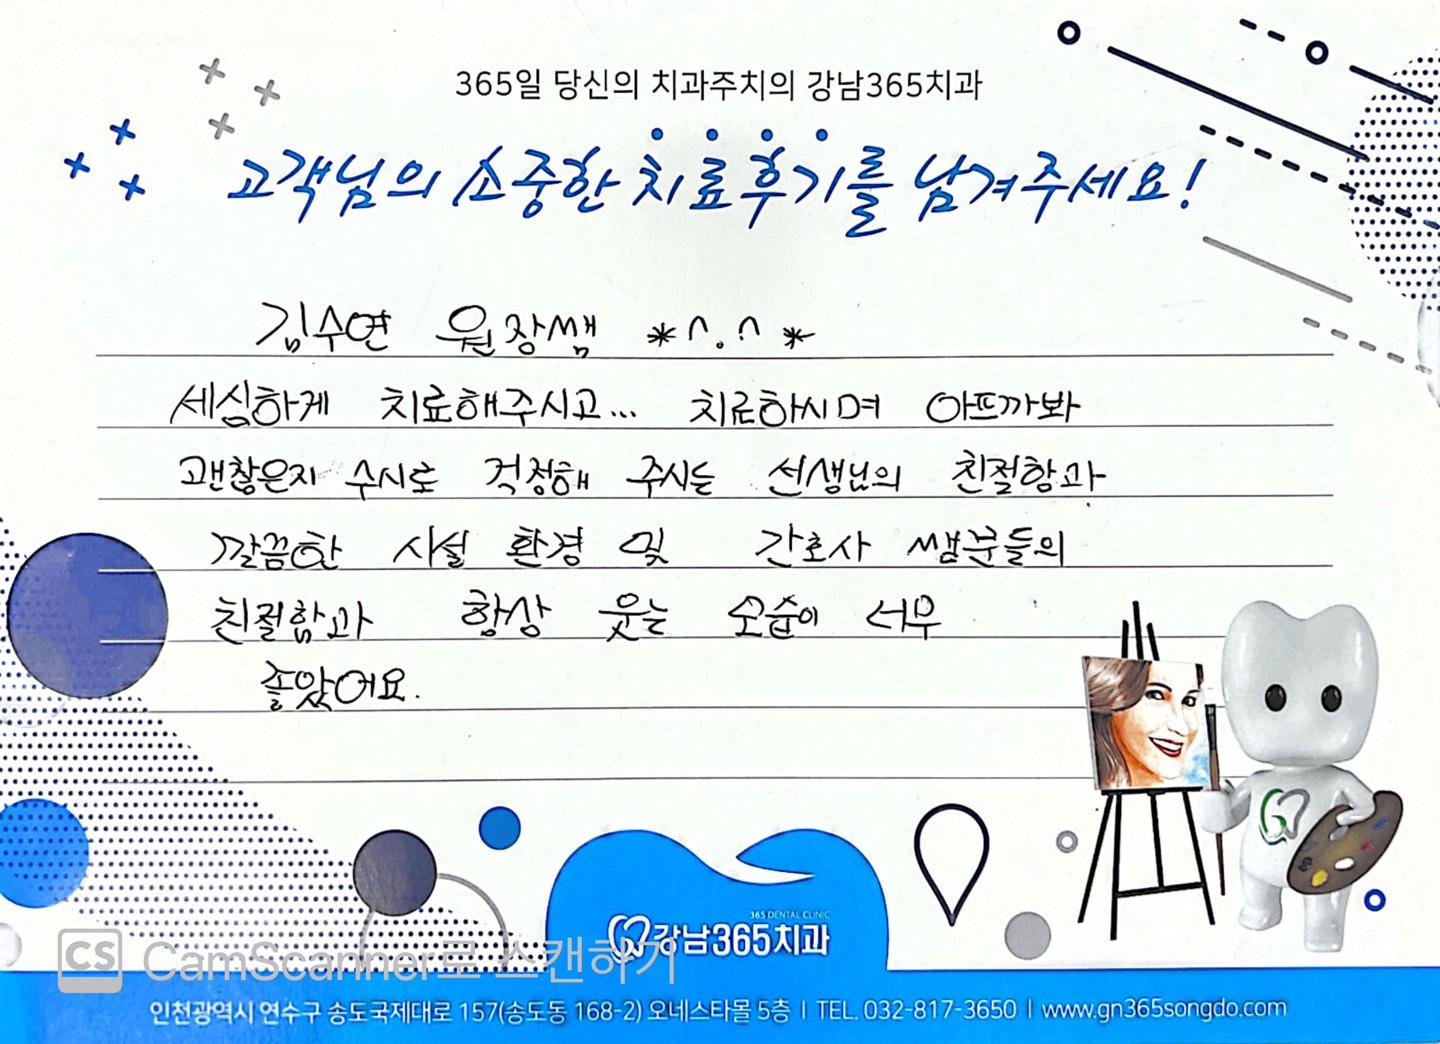 365일 당신의 치과주치의 강남365치과
고객님의 소중한 치료후기를 남겨주세요!
김수연 원장쌤 *^.^*
세심하게 치료해주시고... 치료하시며 아프까봐
괜찮은지 수시로 걱정해 주시는 선생님의 친절함과
깔끔한 시설 환경 및 간호사 쌤분들의
친절함과 항상 웃는 모습이 너무
좋았어요.
365 DENTAL CLINIC
강남365치과
CS CamScanner로 스캔하기
인천광역시 연수구 송도국제대로 157(송도동 168-2) 오네스타몰 5층 | TEL. 032-817-3650 | www.gn365songdo.com